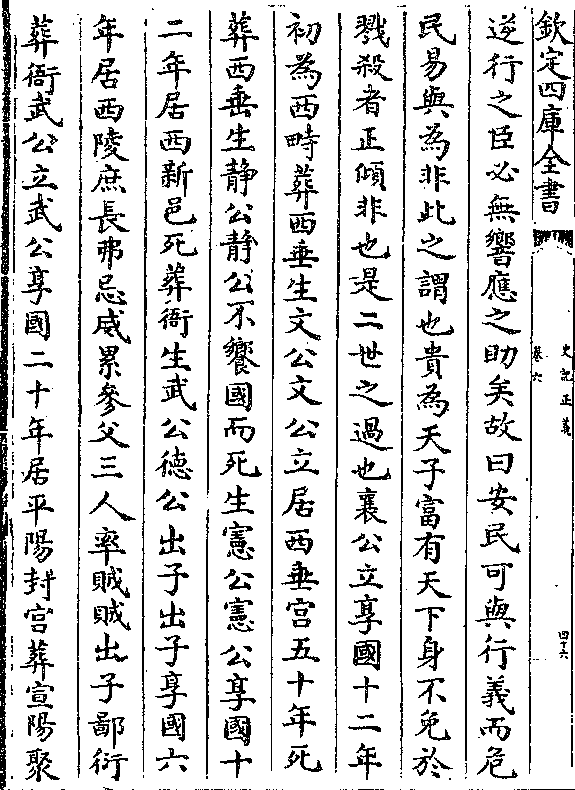 欽定四庫全書
史記正義
卷六
四十六
逆行之臣必無響應之助矣故曰安民可與行義而危
民易與為非此之謂也貴為天子富有天下身不免於
戮殺者正傾非也是二世之過也襄公立享國十二年
初為西畤葬西垂生文公文公立居西垂宫五十年死
葬西垂生静公静公不饗國而死生憲公憲公享國十
二年居西新邑死葬衙生武公徳公出子出子享國六
年居西陵庶長弗忌威累參父三人率賊賊出子鄙衍
葬衙武公立武公享國二十年居平陽封宫葬宣陽聚